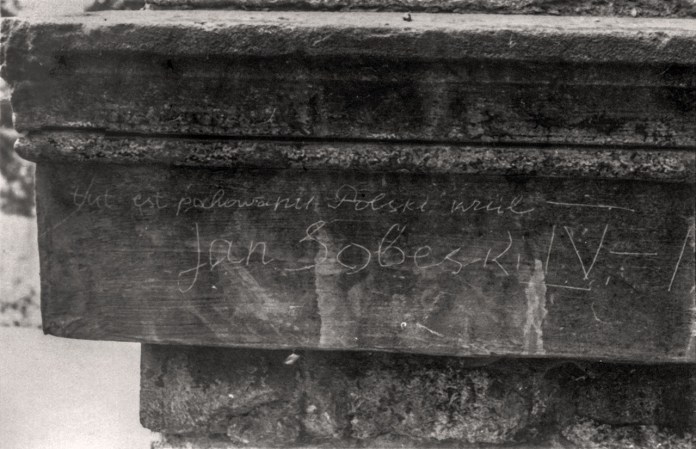 tut est pochowanu Polski kriul —
Jan Sobeski IV. —